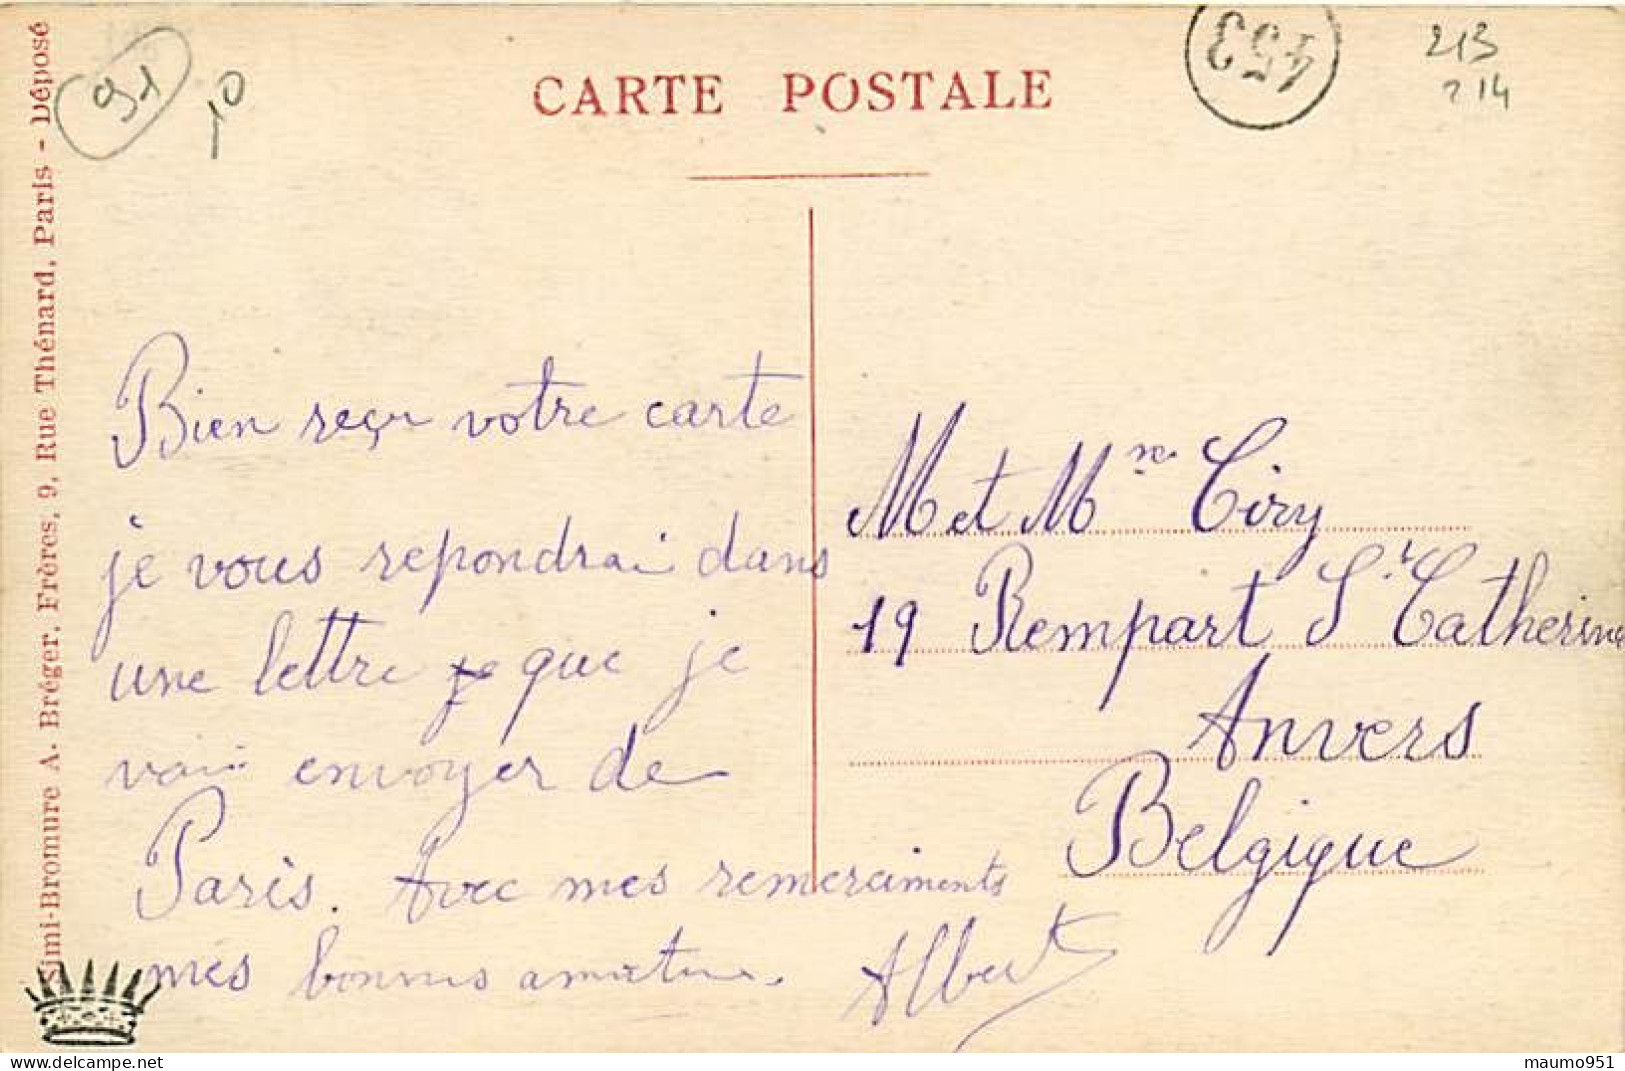 91
10
CARTE POSTALE
453
213
214
Simi-Bromure A. Bréger, Frères, 9, Rue Thénard, Paris - Déposé
Bien reçu votre carte
je vous repondrai dans
une lettre que je
vais envoyer de
Paris. Avec mes remerciments
mes bonnes amities.
Albert
M et Mme Ciry
19 Rempart St Catherine
Anvers
Belgique
maumo951